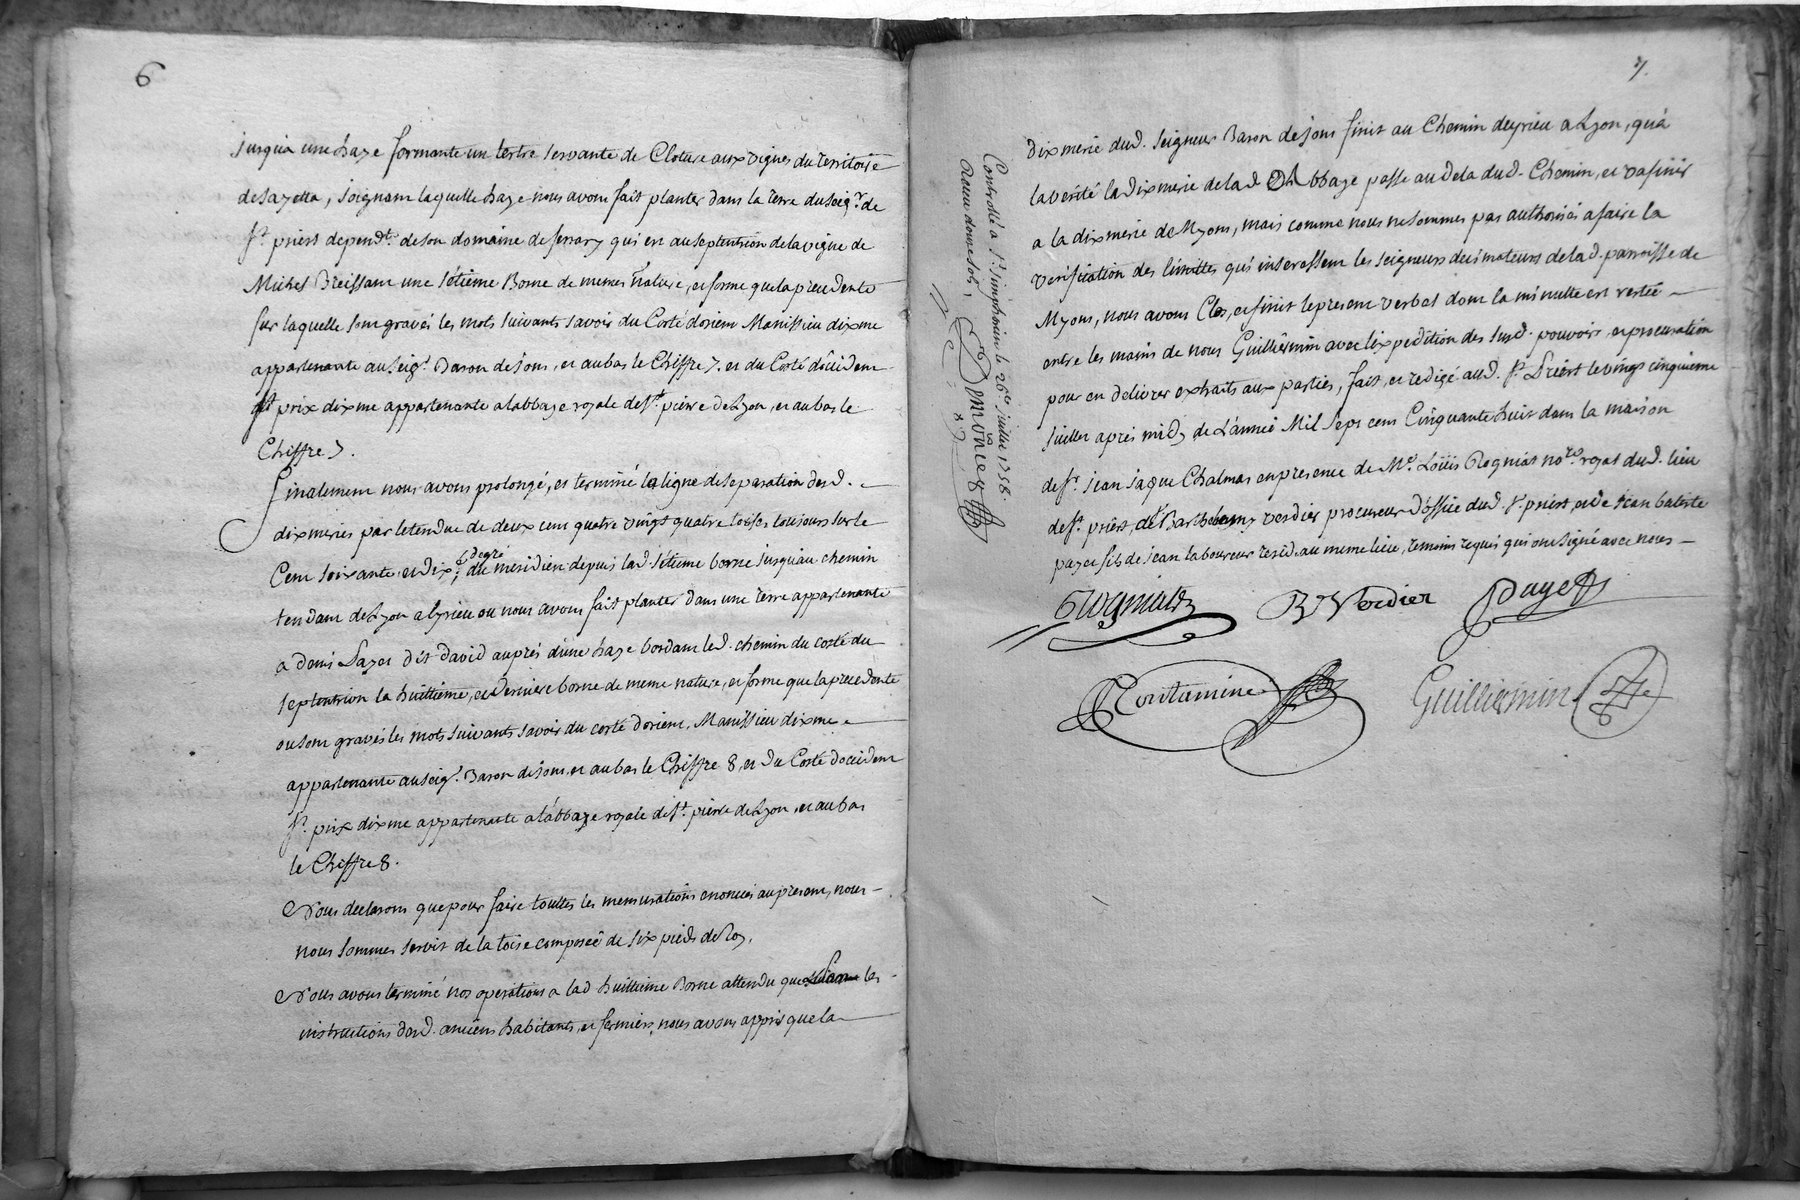 6
jusqu'a une haye formante un tertre servante de Cloture aux vignes du territoire
de layetta, joignant laquelle haye nous avons fait planter dans la terre du seigr. de
st. priest dépendt. de son domaine de ferrary qui est au septentrion de la vigne de
Michel Breissant une sétième Borne de memes nature, et forme que la precedente
sur laquelle sont gravés les mots suivants savoir du Costé dorient Manissieu dixme
appartenante au seigr. Baron de jons, et au bas le Chiffre 7. et du Costé d'ocident
st. prix dixme appartenante a labbaye royale de st. pierre de Lyon, et au bas le
Chiffre 7.
finalement nous avons prolongé, et terminé la ligne de separation desd.
dixmeries par letendue de deux cent quatre vingt quatre toises toujours sur le
Cent soixante et dix: degré du meridien depuis lad. sétieme borne jusquau chemin
tendant de Lyon a hyrieu ou nous avons fait planter dans une terre appartenante
a denis Payet dit david auprés d'une haye bordant led. chemin du costé du
septentrion la huittieme, et Derniere borne de meme nature, et forme que la precedente
ou sont gravés les mots suivants savoir du costé dorient, Manissieu dixme
appartenante au seigr. Baron de jons, et au bas le Chiffre 8, et du Costé docident
st. prix dixme appartenante a labbaye royale de st. pierre de Lyon, et au bas
le Chiffre 8.
Nous declarons que pour faire touttes les mensurations enoncées au present, nous
nous sommes servit de la toise composée de six pieds de Roy.
Nous avons terminé nos operations a lad huittieme Borne attendu que les
instructions desd. anciens habitants, et fermiers, nous avons appris que la
7.
dixmerie dud. seigneur Baron de jons finit au Chemin dhyrieu a Lyon, qu'a
la verité la dixmerie de lad Abbaye passe au dela dud. Chemin, et va finir
a la dixmerie de Myons, mais comme nous ne sommes pas authorisés a faire la
verification des limittes qui interessent les seigneurs decimateurs de lad. parroisse de
Myons, nous avons Clos, et finit le present verbal dont la minutte est restée
entre les mains de nous Guilliermin avec l'expedition des susd. pouvoirs et procuration
pour en delivrer extraits aux parties, fait, et redigé aud. st. Priest le vingt cinquieme
juillet aprés midy de L'année Mil sept cent Cinquante huit dans la maison
de sr. jean jaque Chalmas en presence de Me. Loüis Rogniat nore. royal dud. lieu
de st. priest, de sr. Barthelemy verdier procureur d'office dud. st. priest, et de jean batiste
payet fils de jean laboureur resid. au meme lieu, temoins requis qui ont signé avec nous
Rogniat
By Verdier
Payet
Contamine
Guilliermin
Controllé a st. simphorien le 26e. juillet 1758.
Reçu douze sols,